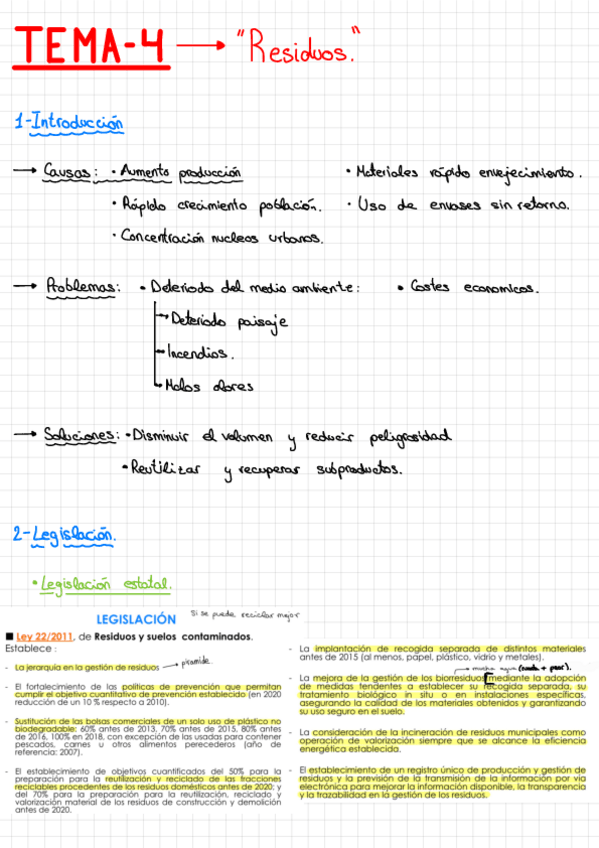 TEMA-4 → "Residuos."
1-Introducción
→ Causas: · Aumento producción
· Rápido crecimiento población.
· Concentración nucleos urbanos.
· Materiales rápido envejecimiento.
· Uso de envases sin retorno.
→ Problemas: · Deteriodo del medio ambiente:
→ Deteriodo paisaje
→ Incendios.
→ Malos olores
· Costes economicos.
→ Soluciones: · Disminuir el volumen y reducir peligrosidad
· Reutilizar y recuperar subproductos.
2-Legislación.
· Legislación estatal.
LEGISLACIÓN
Si se puede reciclar mejor
■ Ley 22/2011, de Residuos y suelos contaminados.
Establece :
- La jerarquía en la gestión de residuos → piramide.
- El fortalecimiento de las políticas de prevención que permitan
cumplir el objetivo cuantitativo de prevención establecido (en 2020
reducción de un 10 % respecto a 2010).
- Sustitución de las bolsas comerciales de un solo uso de plástico no
biodegradable: 60% antes de 2013, 70% antes de 2015, 80% antes
de 2016, 100% en 2018, con excepción de las usadas para contener
pescados, carnes u otros alimentos perecederos (año de
referencia: 2007).
- El establecimiento de objetivos cuantificados del 50% para la
preparación para la reutilización y reciclado de las fracciones
reciclables procedentes de los residuos domésticos antes de 2020; y
del 70% para la preparación para la reutilización, reciclado y
valorización material de los residuos de construcción y demolición
antes de 2020.
- La implantación de recogida separada de distintos materiales
antes de 2015 (al menos, papel, plástico, vidrio y metales).
- La mejora de la gestión de los biorresiduos mediante la adopción
de medidas tendentes a establecer su recogida separada, su
tratamiento biológico in situ o en instalaciones específicas,
asegurando la calidad de los materiales obtenidos y garantizando
su uso seguro en el suelo.
- La consideración de la incineración de residuos municipales como
operación de valorización siempre que se alcance la eficiencia
energética establecida.
- El establecimiento de un registro único de producción y gestión de
residuos y la previsión de la transmisión de la información por vía
electrónica para mejorar la información disponible, la transparencia
y la trazabilidad en la gestión de los residuos.